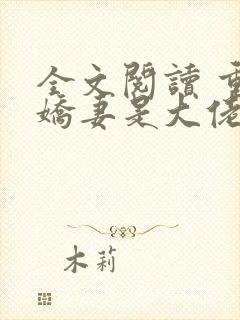 全文閱讀
嬌妻是大佬
木莉